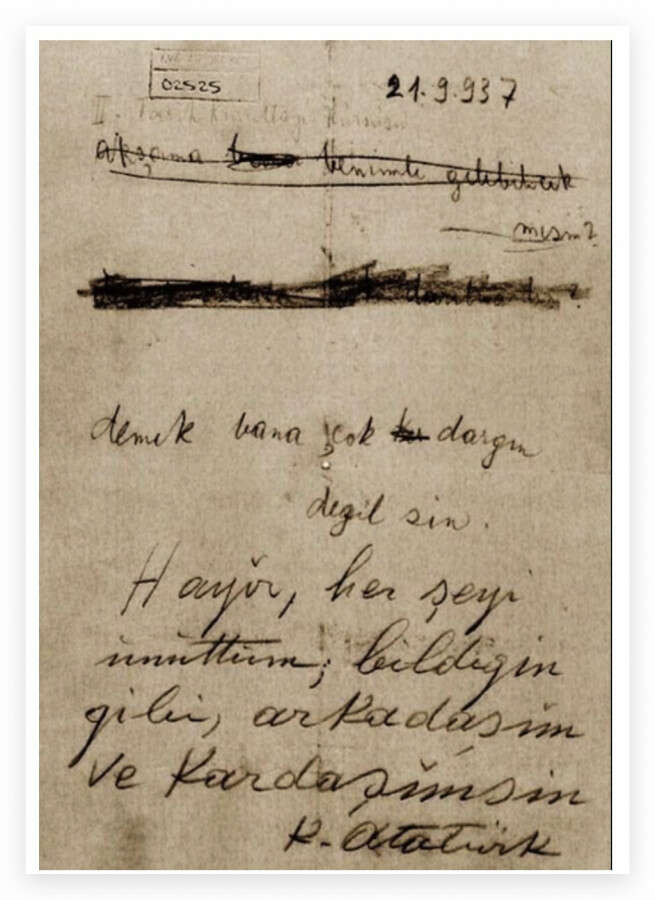 02525
21.9.937
II. Tarih Kurultayı
akşama benimle gelebilecek
misin?
demek bana çok dargın
değil sin.
Hayır, her şeyi
unuttum; bildiğin
gibi, arkadaşım
ve Kardaşımsın
K. Atatürk